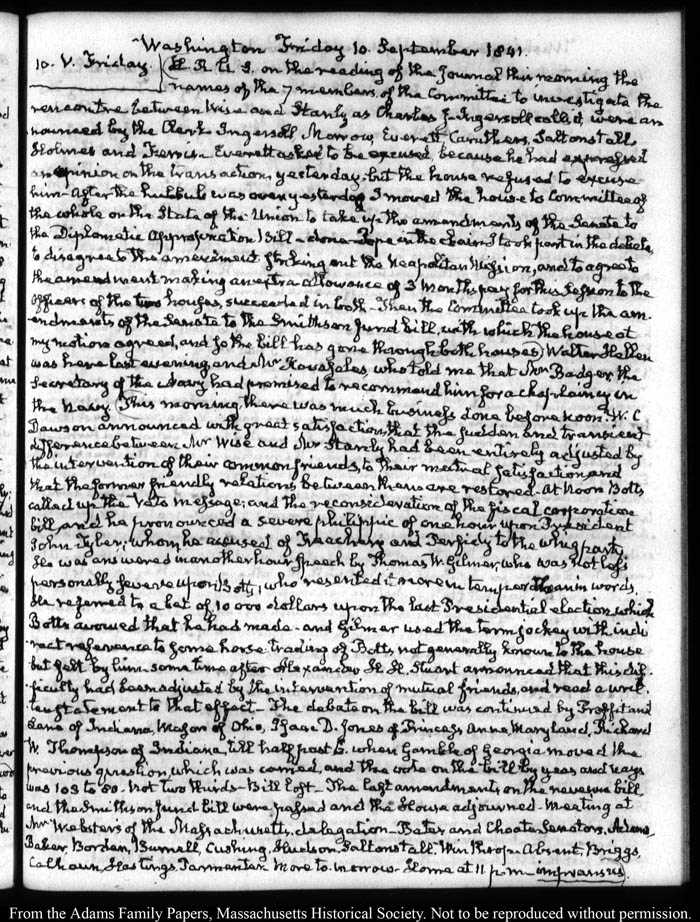 Washington Friday 10. September 1841.
10. V. Friday. H. R. U. S. on the reading of the Journal this morning the
names of the 7 members of the Committee to investigate the
rencontre between Wise and Stanly as Charles J. Ingersoll called, were an
nounced by the Clerk Ingersoll Morrow, Everett Caruthers, Saltonstall,
Holmes and Ferris. Everett asked to be excused, because he had expressed
an opinion on the transaction, yesterday, but the house refused to excuse
him. After the hubbub was over yesterday I moved the house to Committee of
the whole on the State of the Union to take up the amendments of the Senate to
the Diplomatic Appropriation Bill - done. in the chair I took part in the debate,
to disagree to the amendment striking out the Neapolitan Mission, and to agree to
the amendment making an extra allowance of 3 months pay for this Session to the
officers of the two houses, succeeded in both - Then the Committee took up the am-
endments of the Senate to the Smithson fund bill, with which the house at
my motion agreed, and so the bill has gone through both houses) Walter
was here last evening, and Mr who told me that Mr Badger, the
Secretary of the Navy had promised to recommend him for a chaplaincy in
the Navy. (This morning, there was much business done before noon. W. C
Dawson announced with great satisfaction, that the sudden and transient
difference between Mr Wise and Mr Stanly had been entirely adjusted by
the intervention of their common friends, to their mutual satisfaction, and
that the former friendly relations between them are restored - At Noon Botts
called up the Veto message; and the reconsideration of the fiscal corporation
bill, and he pronounced a severe philippic of one hour upon President
John Tyler; whom he accused of Treachery and Perfidy to the whig party.
He was answered in another hour speech by Thomas W. Gilmer, who was not less
personally severe upon Botts, who resented it more in temper than in words.
He referred to a bet of 10 000 dollars upon the last Presidential election which
Botts avowed that he had made - and Gilmer used the term jockey with indi
rect reference to some horse-trading of Botts, not generally known to the house
but felt by him. some time after Alexander H. H. Stuart announced that this dif-
ficulty had been adjusted by the intervention of mutual friends, and read a writ-
ten statement to that effect - The debate on the bill was continued by Proffit and
Lane of Indiana, Mason of Ohio, Isaac D. Jones of Princess Anne Maryland, Richard
W. Thompson of Indiana, till half past 5. when Gamble of Georgia moved the
previous question, which was carried, and the vote on the bill by yeas and nays
was 103 to 80. not two thirds - Bill lost - The last amendments on the revenue bill
and the Smithson fund bill were passed and the House adjourned - Meeting at
Mr Webster's of the Massachusetts delegation - Bates and Choate Senators, Adams,
Baker, Borden, Burnell, Cushing, Hudson, Saltonstall, Winthrop - Absent, Briggs,
Calhoun, Hastings, Parmenter. More to-morrow. Home at 11 p.m.
From the Adams Family Papers, Massachusetts Historical Society. Not to be reproduced without permission.